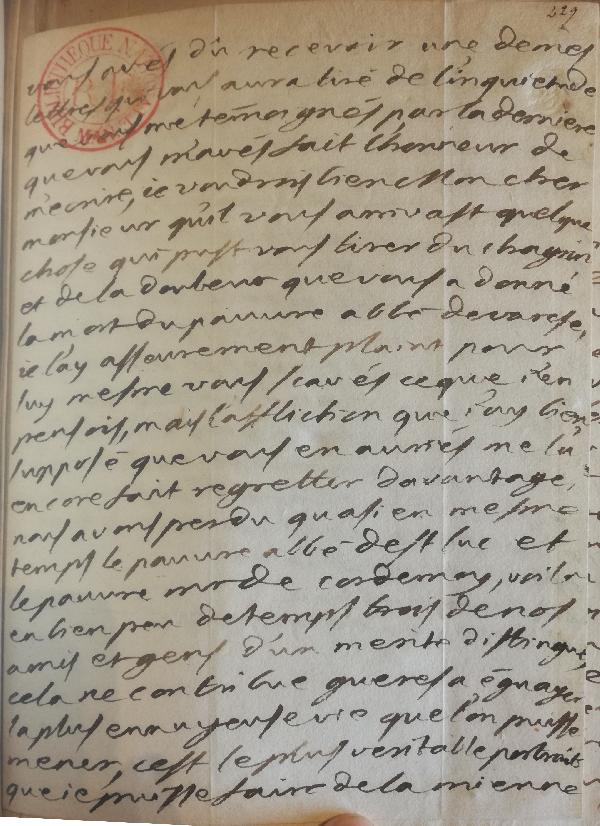 229
vous avés dû recevoir une de mes
lettres qui vous aura tiré de l'inquietude
que vous me témoignés par la derniere
que vous m'avés fait l'honneur de
m'ecrire, ie voudrois bien Mon cher
monsieur qu'il vous arrivast quelque
chose qui pust vous tirer du chagrin
et de la douleur que vous a donné
la mort du pauvre abbé de varese,
ie l'ay asseurement plaint pour
luy mesme vous scavés ce que i'en
pensois, mais l'affliction que i'ay bien
supposé que vous en auriés me l'a
encore fait regretter davantage,
nous avons perdu quasi en mesme
temps le pauvre abbé de st luc et
le pauvre mr de cordemoy, voila
en bien peu de temps trois de nos
amis et gens d'un merite distingué
cela ne contribue gueres a égayer
la plus ennuyeuse vie que l'on puisse
mener, c'est le plus veritable portrait
que ie puisse faire de la mienne